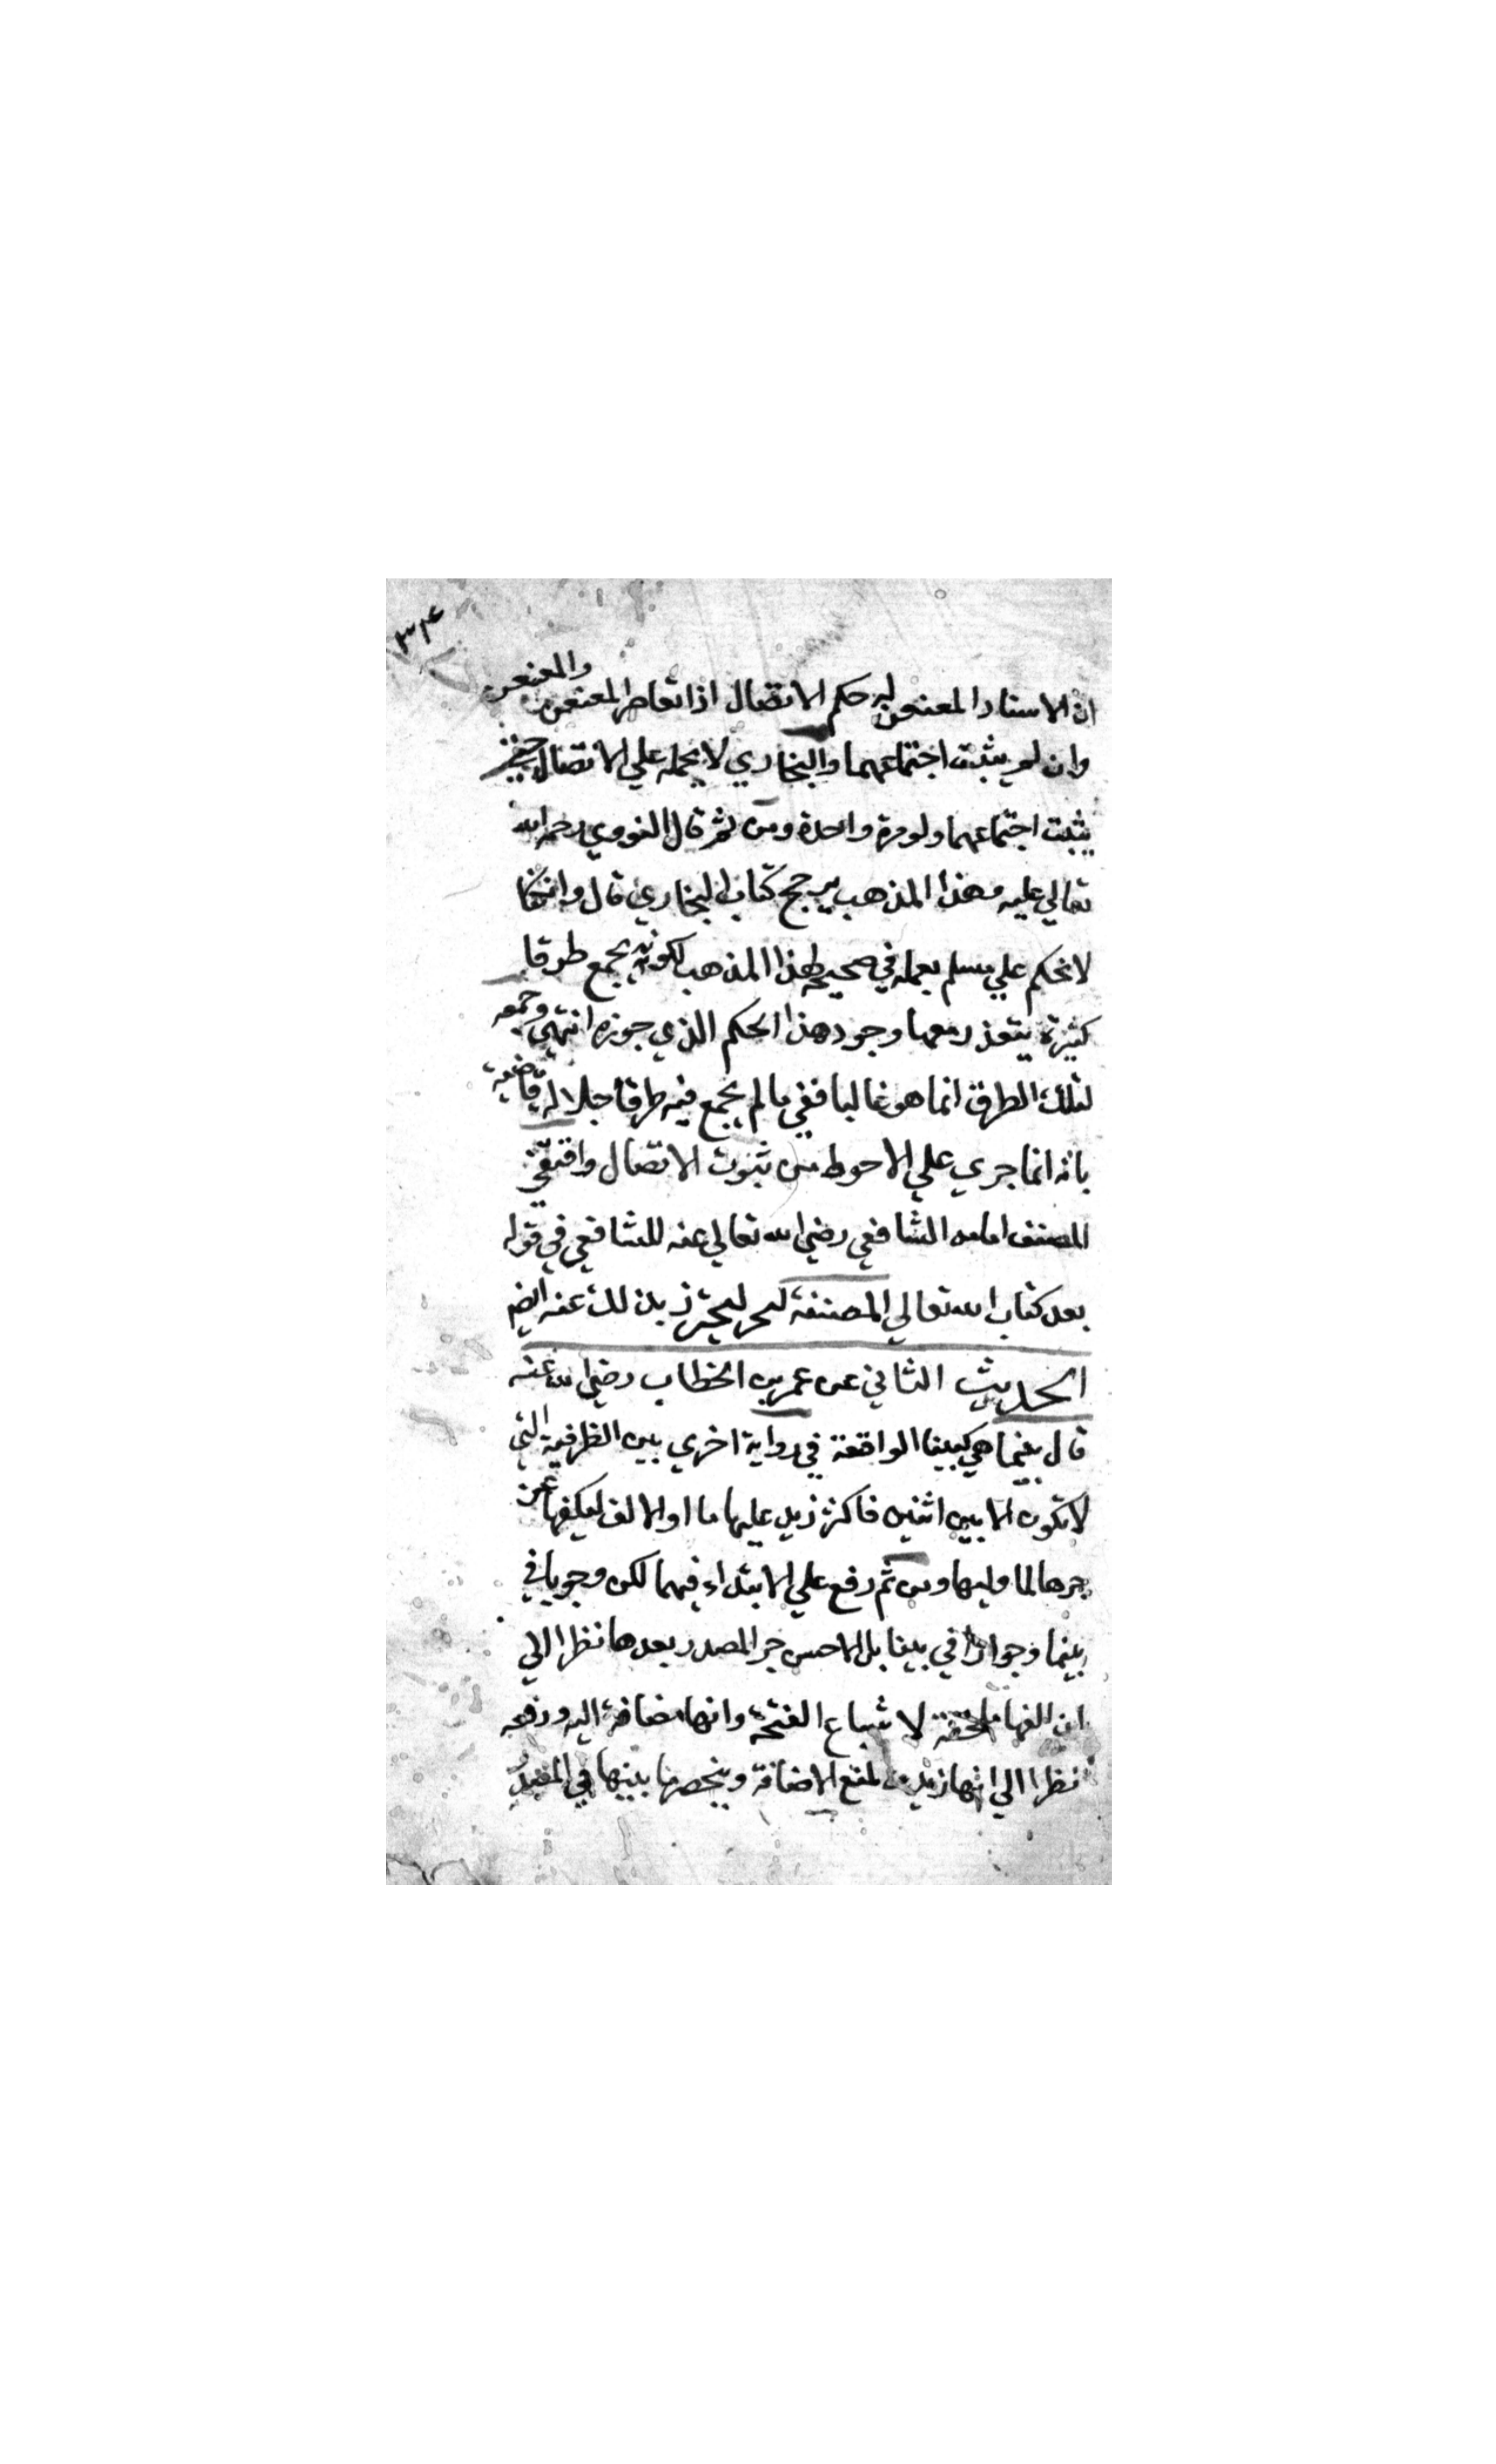 ٣٤
ان الاسناد المعنعن له حكم الاتصال اذا تعاصر المعنعن والمعنعن
وان لم يثبت اجتماعهما والبخاري لا يحمله علي الاتصال حتي
يثبت اجتماعهما ولو مرة واحدة ومن ثم قال النووي رحمه الله
تعالي عليه وهذا المذهب يرجح كتاب البخاري قال وان كنا
لا نحكم علي مسلم بعمله في صحيحه لهذا المذهب لكونه يجمع طرقا
كثيرة يتعذر معها وجود هذا الحكم الذي جوزه انتهي وجمعه
لتلك الطرق انما هو غالبا ففي ما لم يجمع فيه طرقا جلالة قاضية
بانه انما جري علي الاحوط من ثبوت الاتصال واقتفي
المصنف امامه الشافعي رضي الله تعالي عنه للشافعي في قوله
بعد كتاب الله تعالي المصنفة ليحترز بذلك عنه ايضا
الحديث الثاني عن عمر بن الخطاب رضي الله عنه
قال بينما هي كبينا الواقعة في رواية اخري بين الظرفية التي
لا تكون الا بين اثنين فاكثر زيد عليها ما او الالف ليكفها عن
جرها لما وليها ومن ثم رفع علي الابتداء فيهما لكن وجوبا في
بينما وجوازا في بينا بل الاحسن جر المصدر بعدها نظرا الي
ان الفها ملحقة لاشباع الفتحة وانها مضافة اليه ورفعه
نظرا الي انها زيدت لمنع الاضافة وينحصر ما بينها في